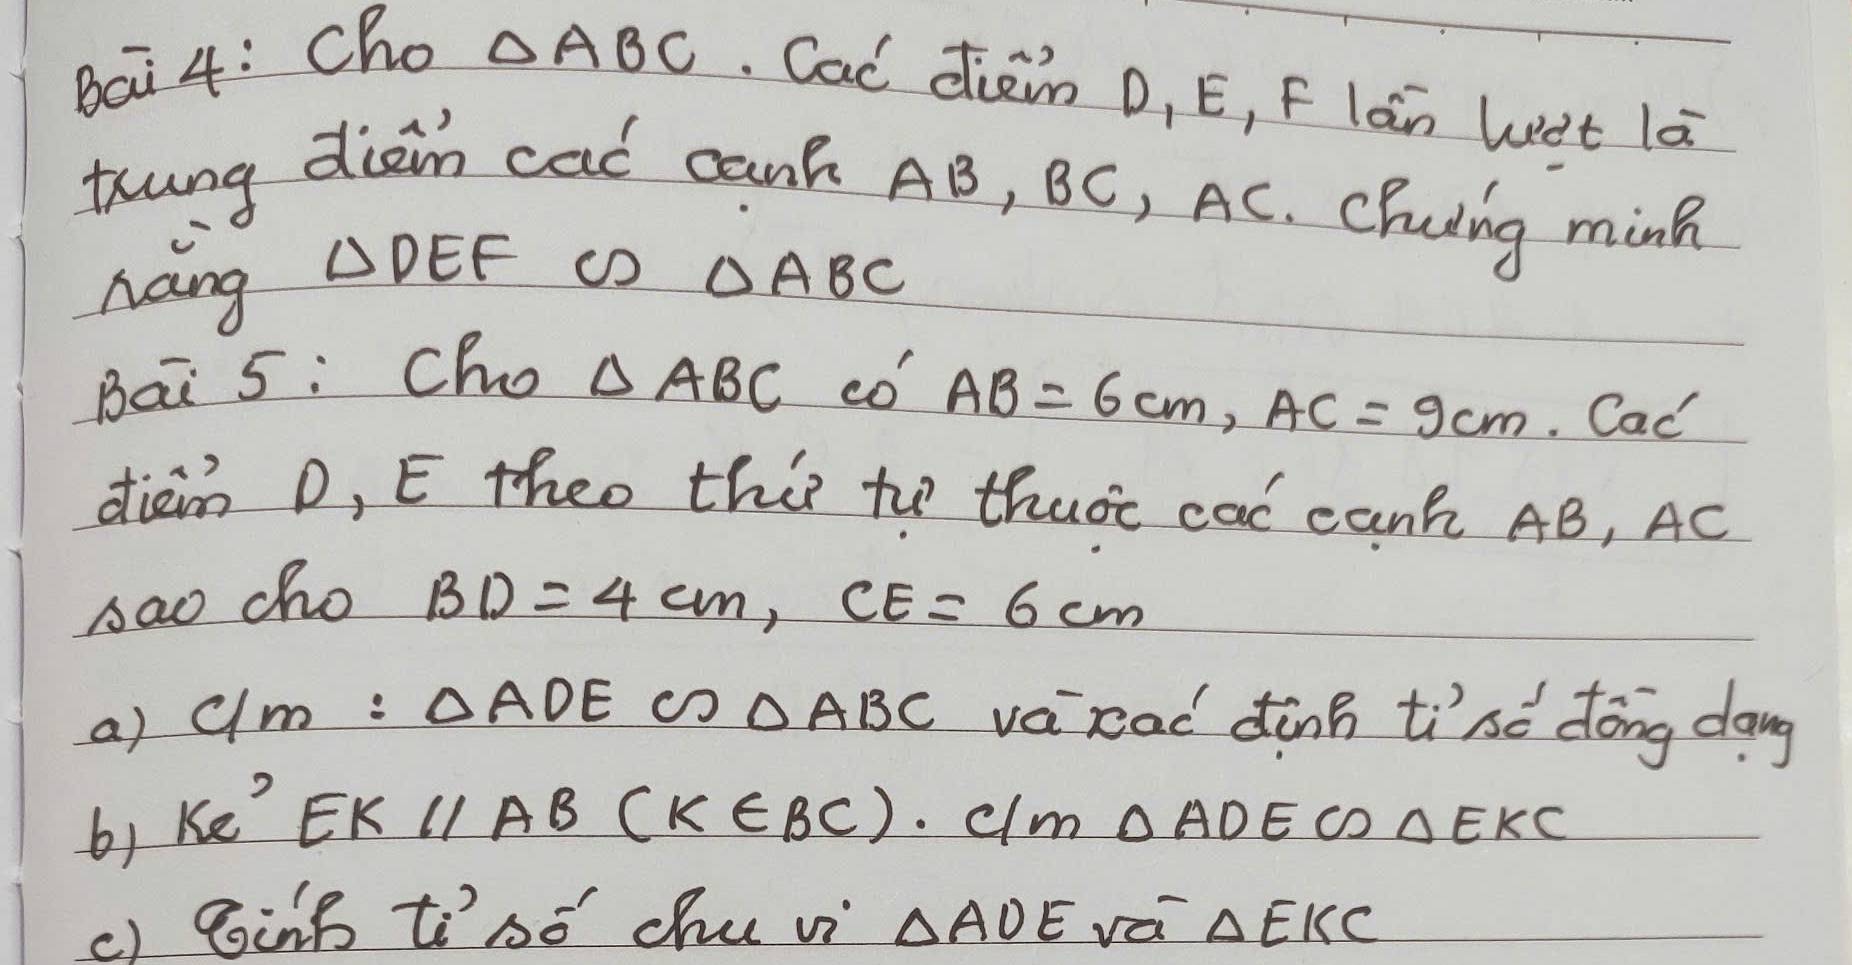 Bài 4: Cho △ABC. Các điểm D, E, F lần lượt là
trung điểm các cạnh AB, BC, AC. Chứng minh
rằng △DEF ∽ △ABC
Bài 5: Cho △ABC có AB = 6cm, AC = 9cm. Các
điểm D, E theo thứ tự thuộc các cạnh AB, AC
sao cho BD = 4 cm, CE = 6 cm
a) C/m : △ADE ∽ △ABC và xác định tỉ số đồng dạng
b) Kẻ EK // AB (K ∈ BC). c/m △ADE ∽ △EKC
c) Tính tỉ số chu vi △ADE và △EKC